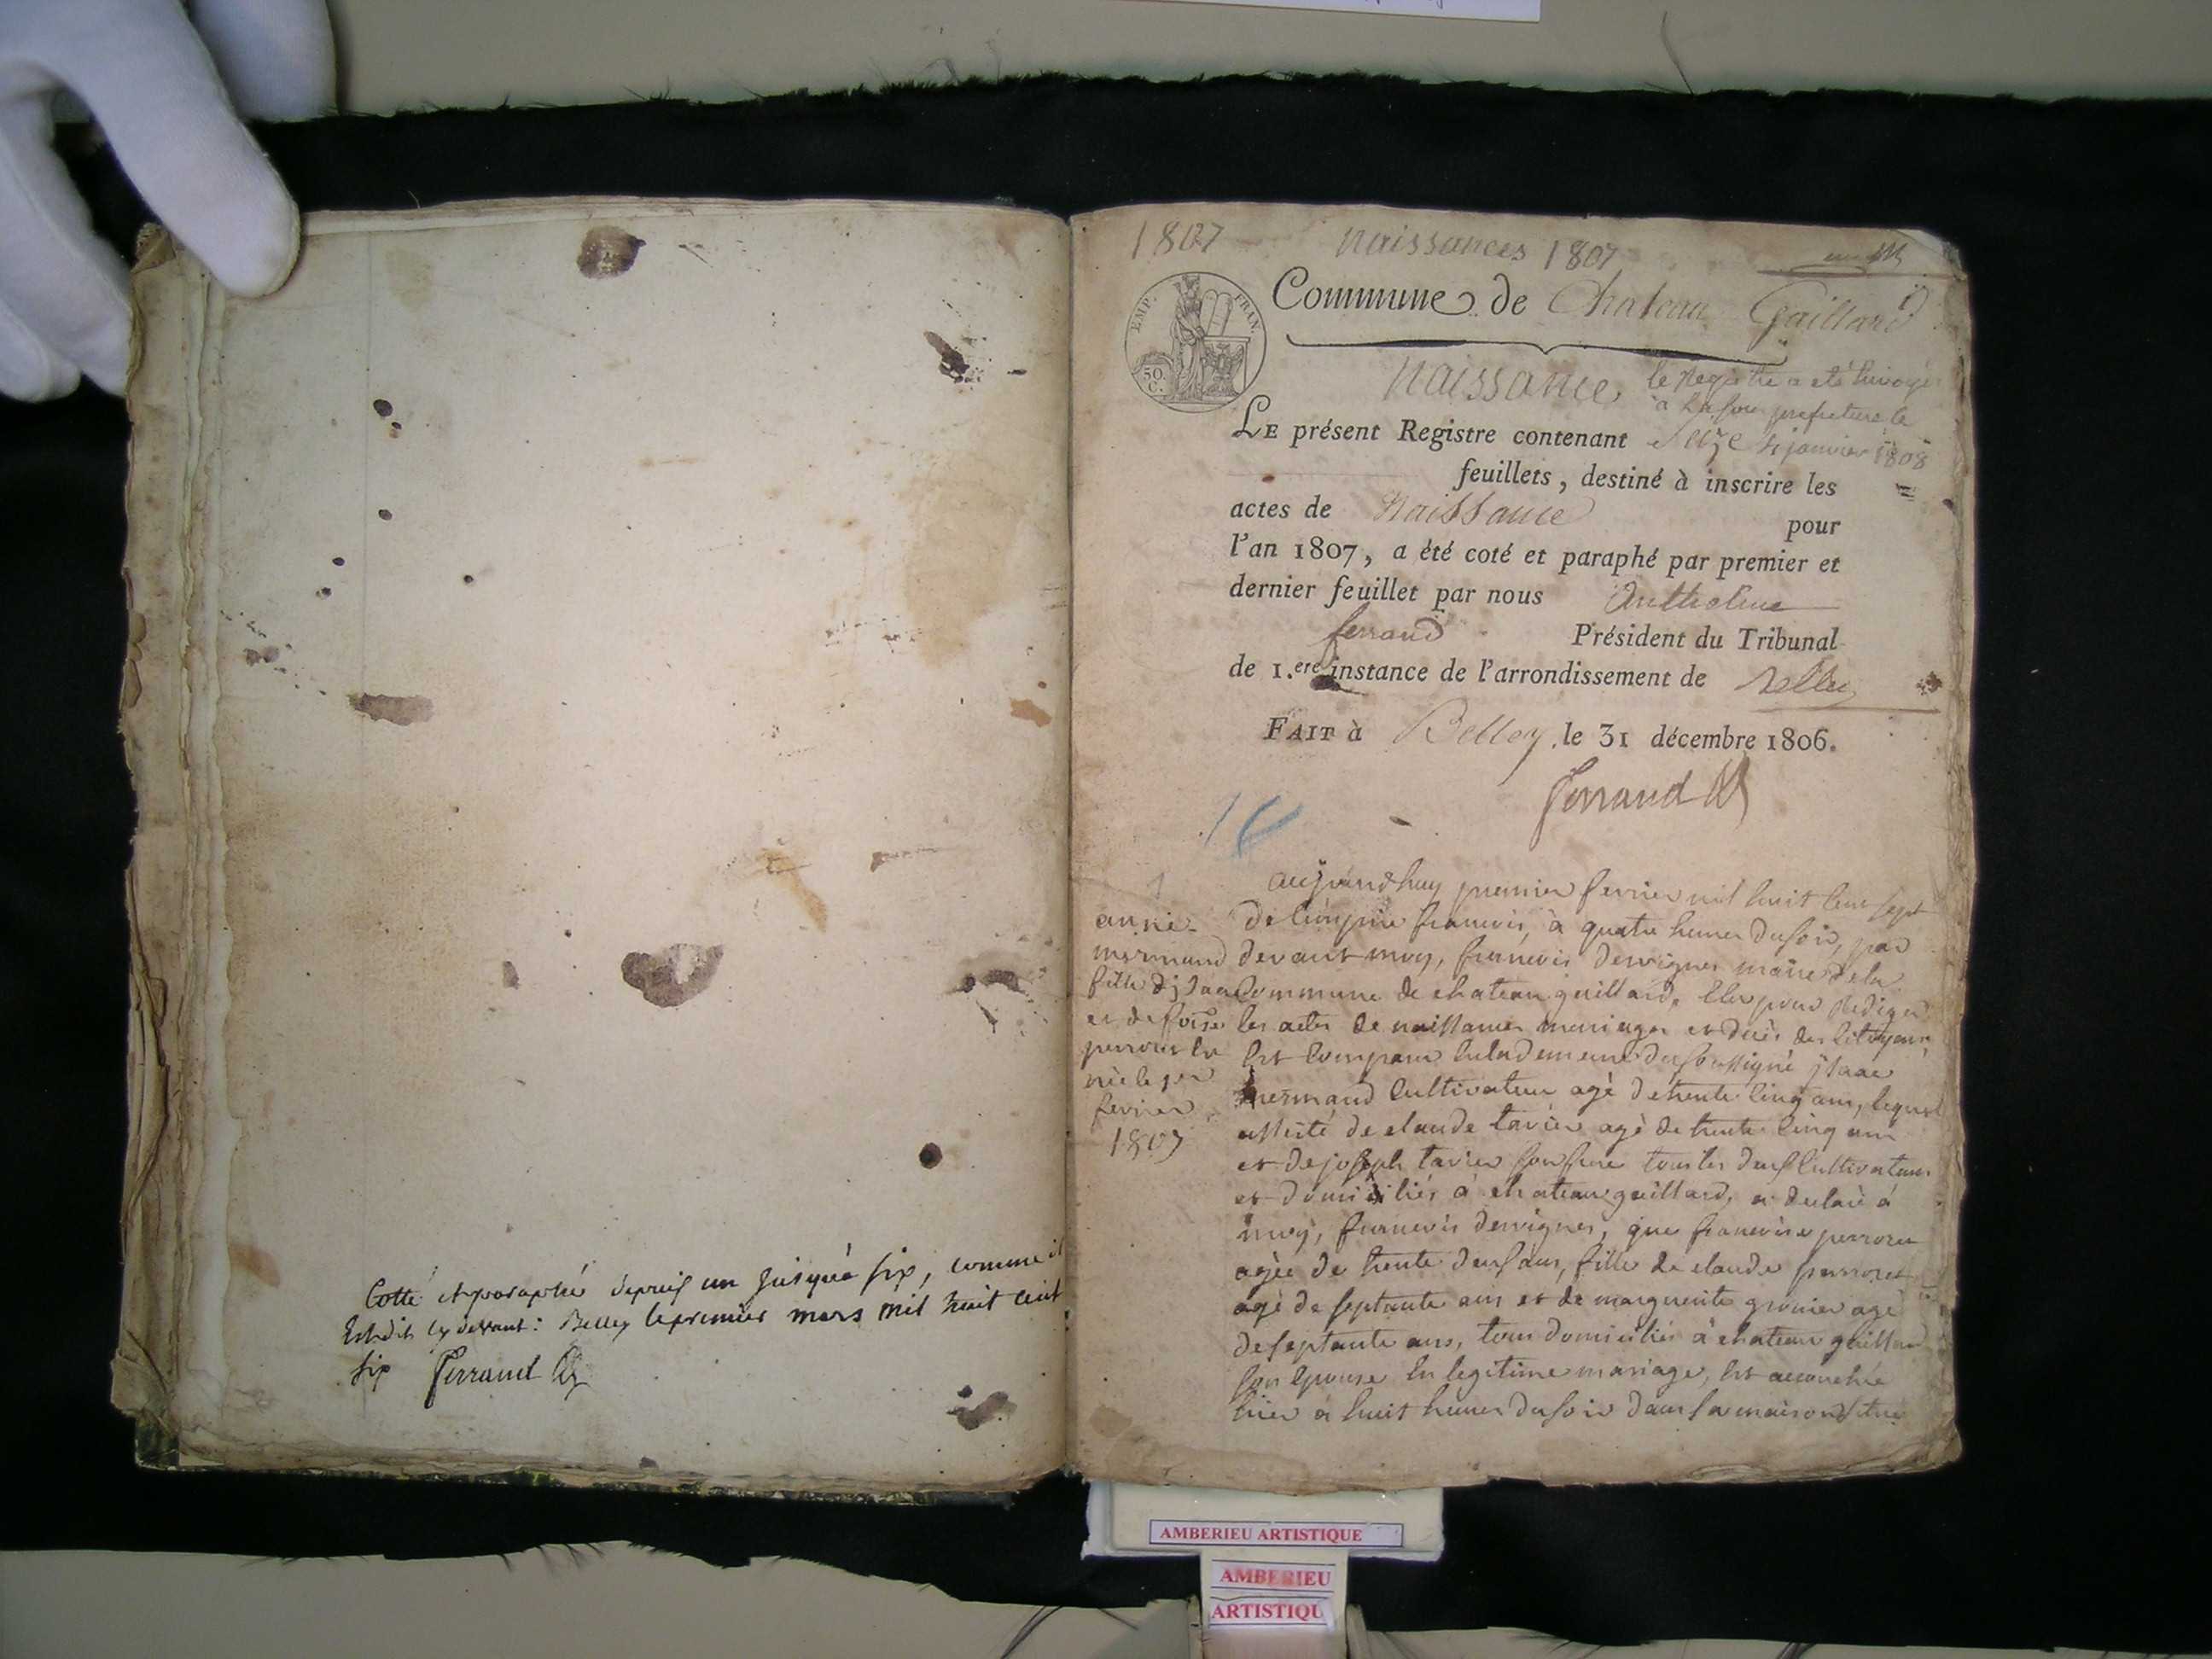 Cotté et paraphé depuis un jusqu'à six, comme il
Est dit cy devant : Belley le premier mars mil huit cent
six Ferrand
1807
naissances 1807
EMP. FRAN.
50.
C.
Commune de Chateau Gaillard
Naissance
le Registre a eté Envoyé
a la sous prefecture le
4 janvier 1808
LE présent Registre contenant Seize
feuillets, destiné à inscrire les
actes de Naissance pour
l'an 1807, a été coté et paraphé par premier et
dernier feuillet par nous Anthelme
ferrand Président du Tribunal
de 1.ere instance de l'arrondissement de Belley
FAIT à Belley, le 31 décembre 1806.
Ferrand
16
1
anne
mermand
fille d'jsaac
et de
perrozet
née le 1er
fevrier
1807
aujourd'huy premier fevrier mil huit cent sept
de l'empire francois, à quatre heures du soir, par
devant moy, francois desvignes maire de la
Commune de chateau gaillard, Elu pour Rediger
les actes de naissances mariages et décès des Citoyens,
Est Comparu du soussigné jsaac
mermand Cultivateur agé de trente Cinq ans, lequel
assisté de claude tavier agé de trente Cinq ans
et de joseph tavier son frere tous les deux Cultivateurs
et domiciliés à chateau gaillard, a declaré à
moy, francois desvignes, que francoise perrozet
agée de trente deux ans, fille de claude perrozet
agé de septante ans et de marguerite agé
de septante ans, tous domiciliés à chateau gaillard
son Epouse En legitime mariage, Est accouchée
hier à huit heures du soir dans sa maison
AMBERIEU ARTISTIQUE
AMBERIEU
ARTISTIQU